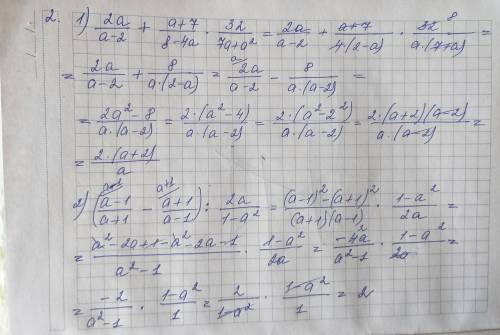 2. 1) 2a/(a-2) + (a+7)/(8-4a) · 32/(7a+a²) = 2a/(a-2) + (a+7)/(4(2-a)) · 32⁸/(a·(7+a)) =
= 2a/(a-2) + 8/(a·(2-a)) = 2a/(a-2) - 8/(a·(a-2)) =
= (2a²-8)/(a·(a-2)) = 2·(a²-4)/(a·(a-2)) = 2·(a²-2²)/(a·(a-2)) = 2·(a+2)(a-2)/(a·(a-2)) =
= 2·(a+2)/a
2) ((a-1)/(a+1) - (a+1)/(a-1)) : 2a/(1-a²) = ((a-1)²-(a+1)²)/((a+1)(a-1)) · (1-a²)/2a =
= (a²-2a+1-a²-2a-1)/(a²-1) · (1-a²)/2a = -4a/(a²-1) · (1-a²)/2a =
= -2/(a²-1) · (1-a²)/1 = 2/(1-a²) · (1-a²)/1 = 2